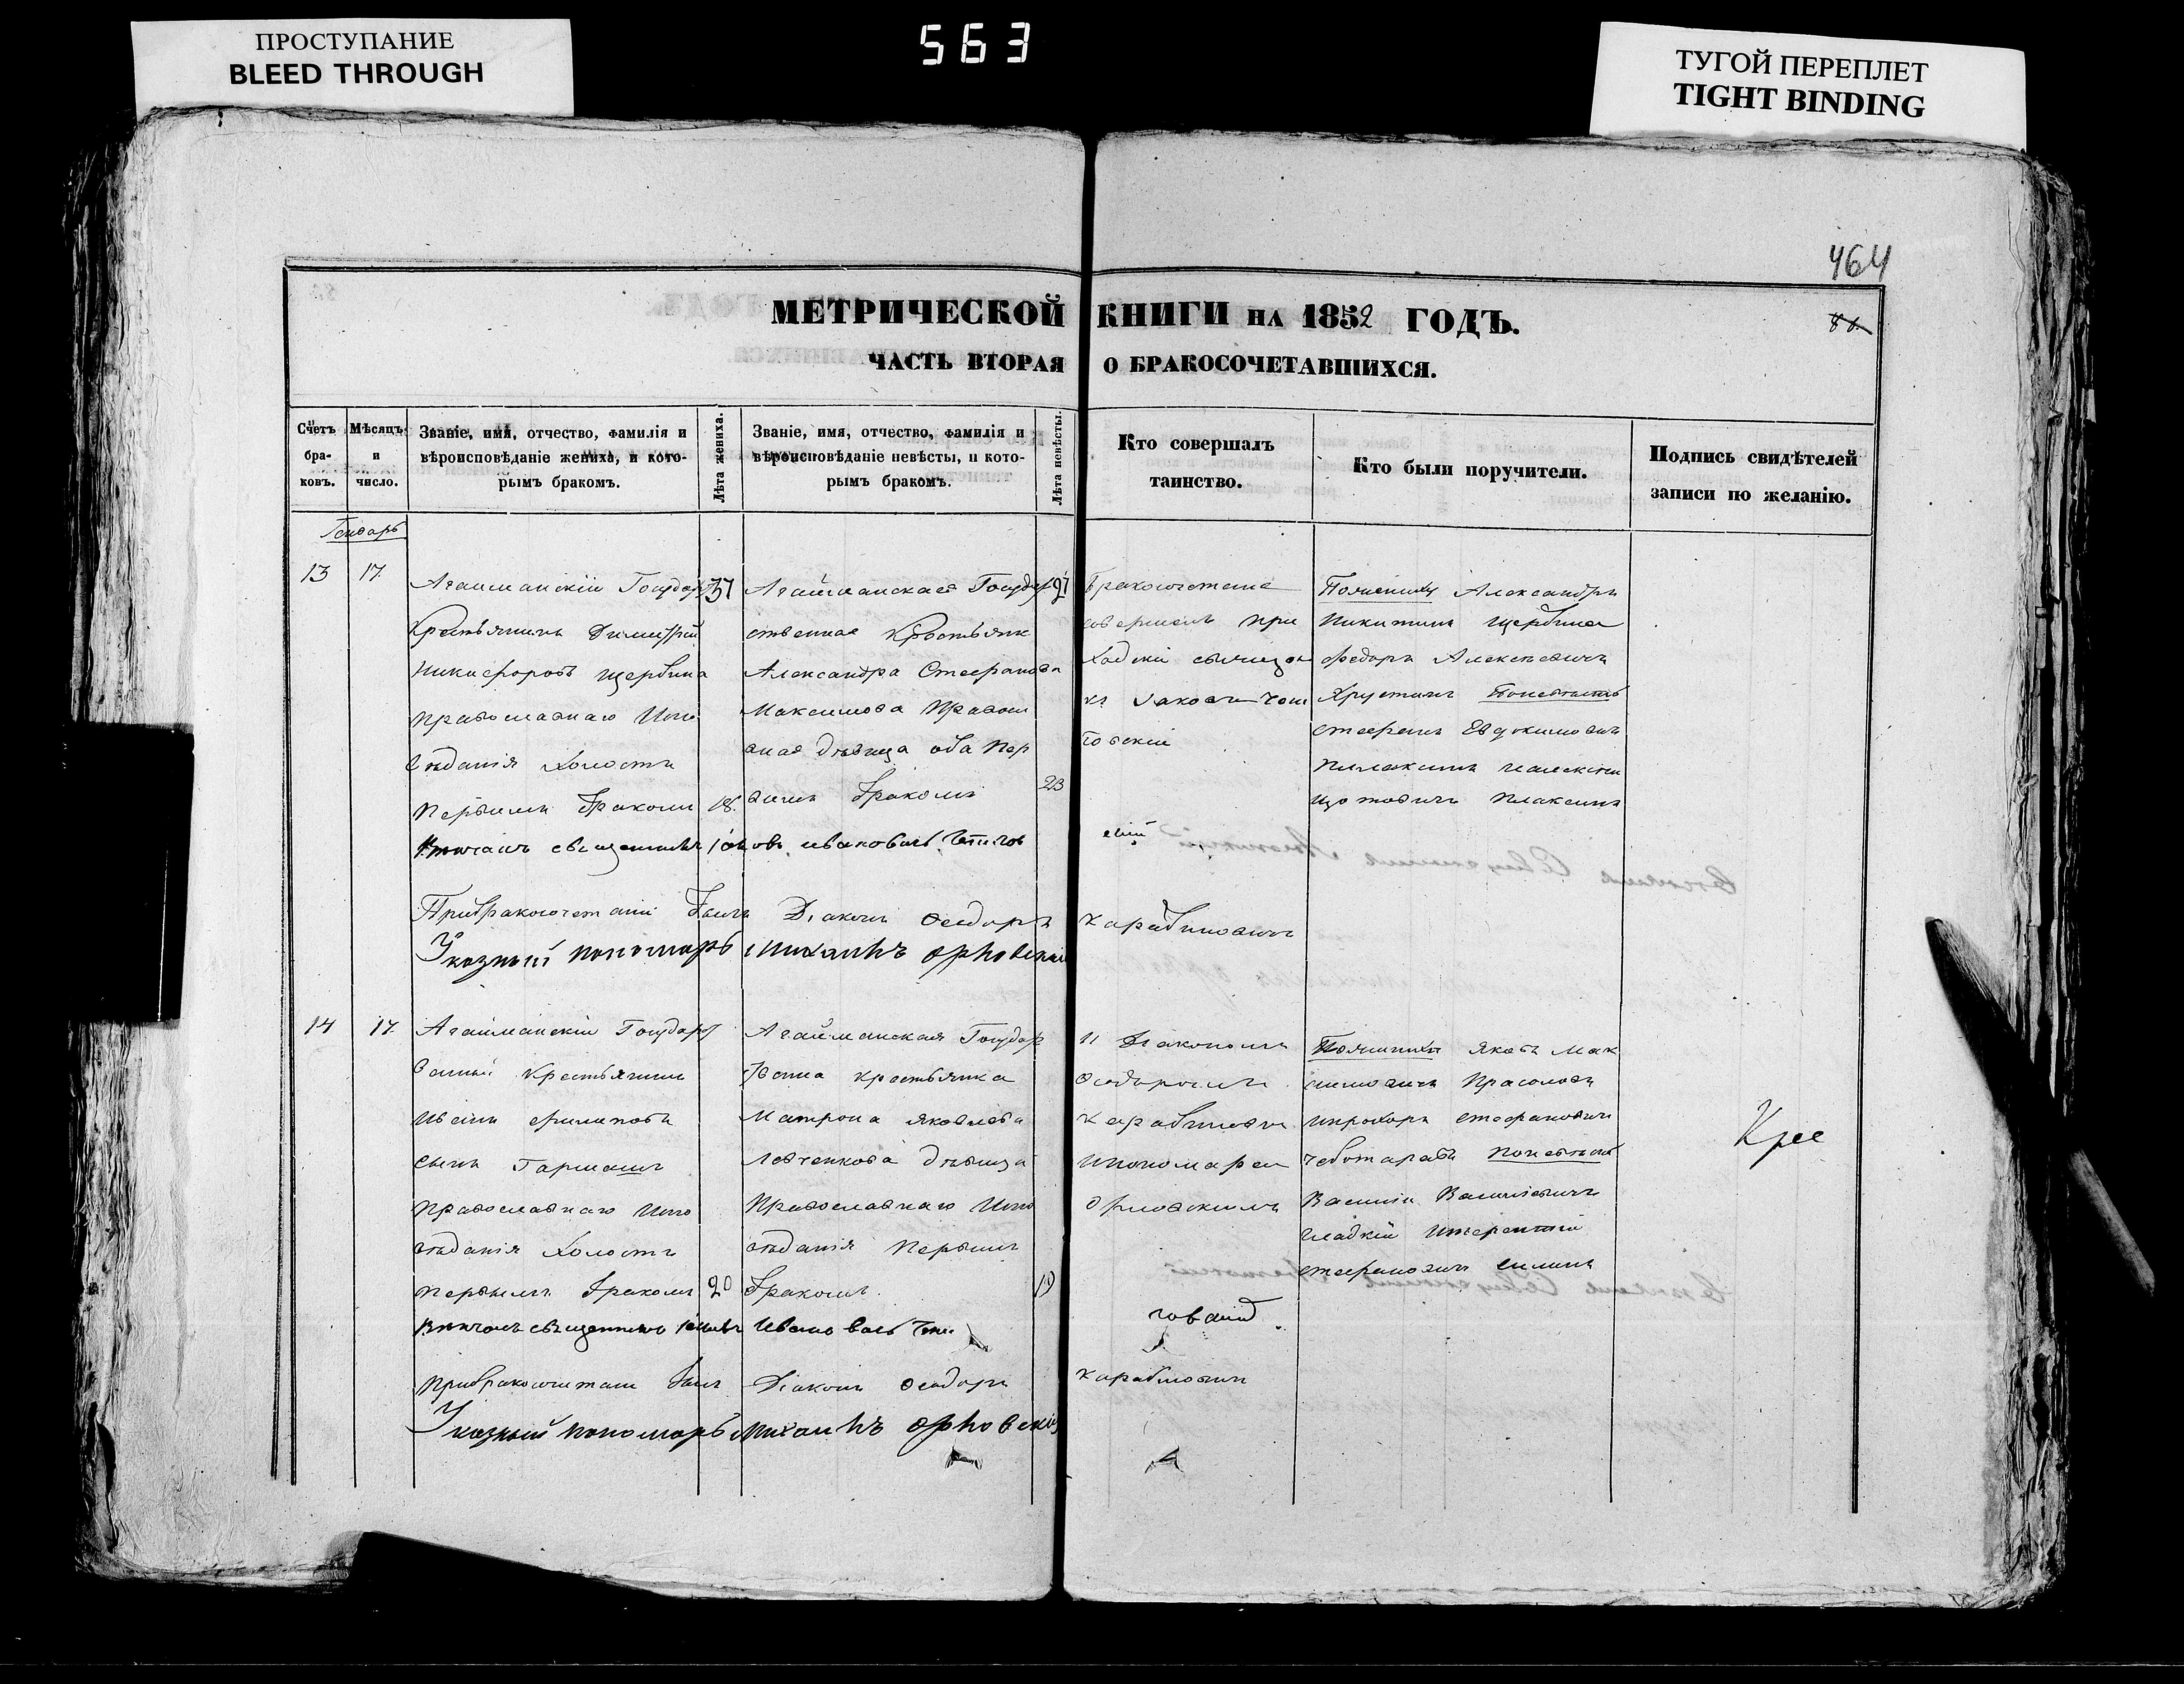 ПРОСТУПАНИЕ
BLEED THROUGH
563
ТУГОЙ ПЕРЕПЛЕТ
TIGHT BINDING
464
МЕТРИЧЕСКОЙ КНИГИ НА 1852 ГОДЪ.
ЧАСТЬ ВТОРАЯ О БРАКОСОЧЕТАВШИХСЯ.
Счетъ бра-ковъ.
Мѣсяцъ и число.
Званіе, имя, отчество, фамилія и
вѣроисповѣданіе жениха, и кото-
рымъ бракомъ.
Лѣта жениха.
Званіе, имя, отчество, фамилія и
вѣроисповѣданіе невѣсты, и кото-
рымъ бракомъ.
Лѣта невѣсты.
Кто совершалъ
таинство.
Кто были поручители.
Подпись свидѣтелей
записи по желанію.
Генварь
13
17.
Агайманскій Государст
Крестьянинъ Димитрій
Никифоровъ Щербина
Православнаго Испо
вѣданія Холостъ
Первымъ Бракомъ
18.
Агайманская Государ
ственная Крестьянк
Александра Стефанова
Максимова Правосл
вная дѣвица оба Пер
вымъ Бракомъ
23
Бракосочетание
совершилъ При
ходскій священ
къ Іаковъ
Поженихѣ Александръ
Никитинъ Щербина
Федоръ Алексѣевичъ
Хрустинъ Поневѣстѣ
Стефанъ Евдокимовичъ
Плаксинъ
Плаксинъ
Вѣнчалъ священникъ Іаковъ Ивановъ
Прибракосочетаніи Былъ Діаконъ Феодоръ Карабиновичъ
Указный пономарь Михаилъ Орловскій
14
17.
Агайманскій Государст
венный Крестьянинъ
Иванъ Филиповъ
сынъ Гаршанъ
Православнаго Испо
вѣданія Холостъ
Первымъ Бракомъ
20
Агайманская Государ
ственна крестьянка
Матрона Яковлева
Левченкова дѣвица
Православнаго Испо
вѣданія Первымъ
Бракомъ.
19
и Діакономъ
Феодоромъ
Карабинови
ипономарем
Орловскимъ
Поженихѣ Яковъ Мак
симовичъ Прасоловъ
ипрохоръ Стефановичъ
Чеботаревъ Поневѣстѣ
Василій Васильевичъ
Гладкій итерентій
Стефановичъ Силинъ
Вѣнчалъ священникъ Іаковъ Ивановъ
Прибракосочетани Былъ Діаконъ Феодоръ Карабиновичъ
Указный пономарь Михаилъ Орловскій